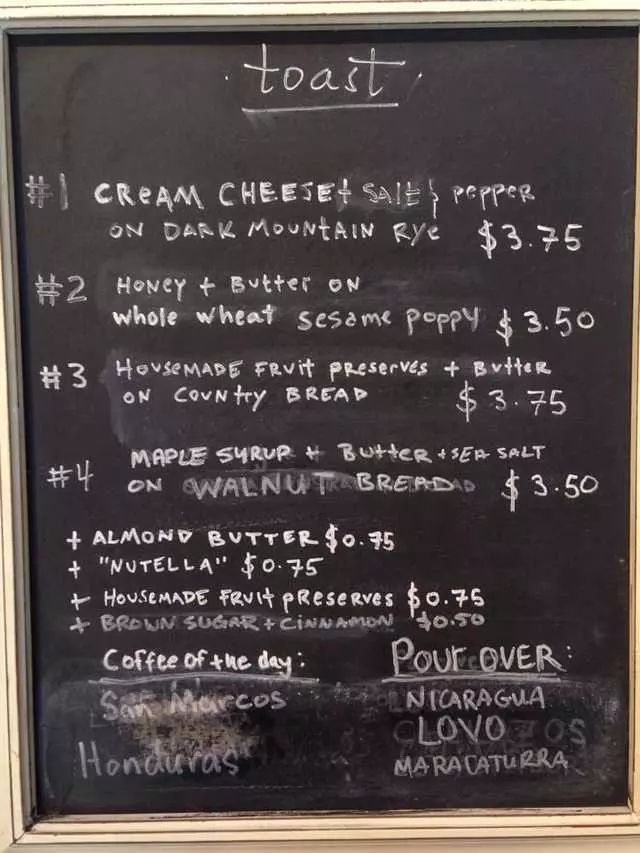 toast
#1 CREAM CHEESE + SALT & PEPPER
ON DARK MOUNTAIN RYE $3.75
#2 HONEY + BUTTER ON
whole wheat sesame poppy $3.50
#3 HOUSEMADE FRUIT PRESERVES + BUTTER
ON COUNTRY BREAD $3.75
MAPLE SYRUP + BUTTER + SEA SALT
#4 ON WALNUT BREAD $3.50
+ ALMOND BUTTER $0.75
+ "NUTELLA" $0.75
+ HOUSEMADE FRUIT PRESERVES $0.75
+ BROWN SUGAR + CINNAMON $0.50
Coffee of the day:
San Marcos
Honduras
POUR OVER:
NICARAGUA
LOVO
MARACATURRA